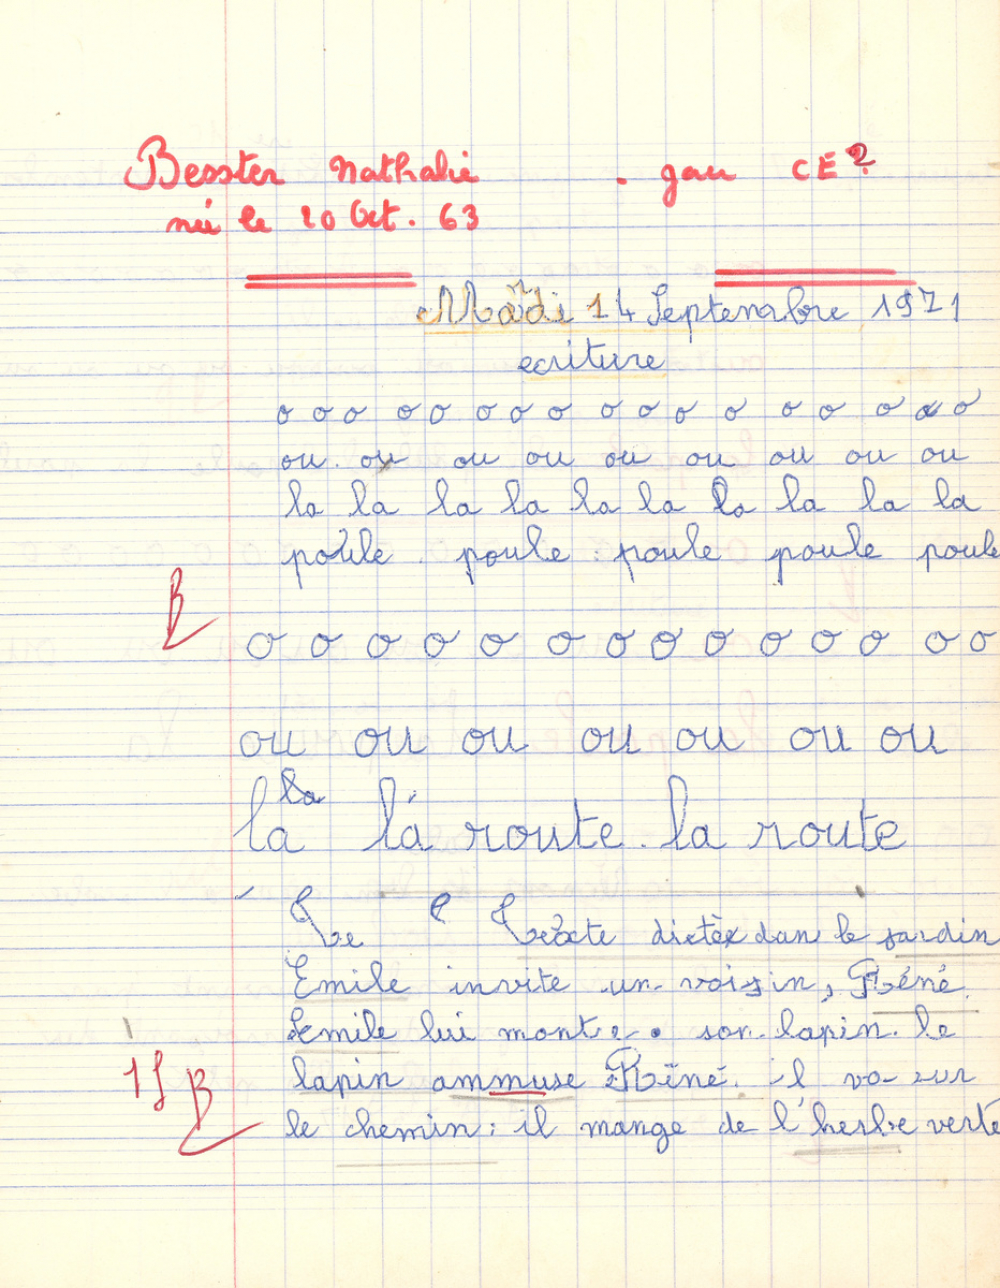 Besster Nathalie . gau CE2
née le 20 Oct. 63
Mardi 14 Septembre 1971
ecriture
o o o o o o o o o o o o o o o o o o
ou. ou ou ou ou ou ou ou ou
la la la la la la la la la la
poule. poule: poule poule poule
B
o o o o o o o o o o o o o o
ou ou ou ou ou ou ou
la
la la route. la route
Le texte dictée dans le jardin
Emile invite un voisin, Réné.
Emile lui montre. son lapin. le
1f B lapin ammuse Réné. il va sur
le chemin: il mange de l'herbe verte